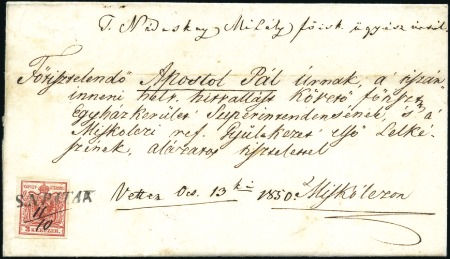 T. Nádaskay Mihály
Főtisztelendő Apostol Pál Úrnak, a tiszán
inneni helv. hitvallást követő
Egyházkerület Superintendensének, s a
Miskolczi ref. Gyülekezet első Lelké-
szének, alázatos tisztelettel
Vettem Oct. 13 1850. Miskolczon
S.N.PATAK
11/10